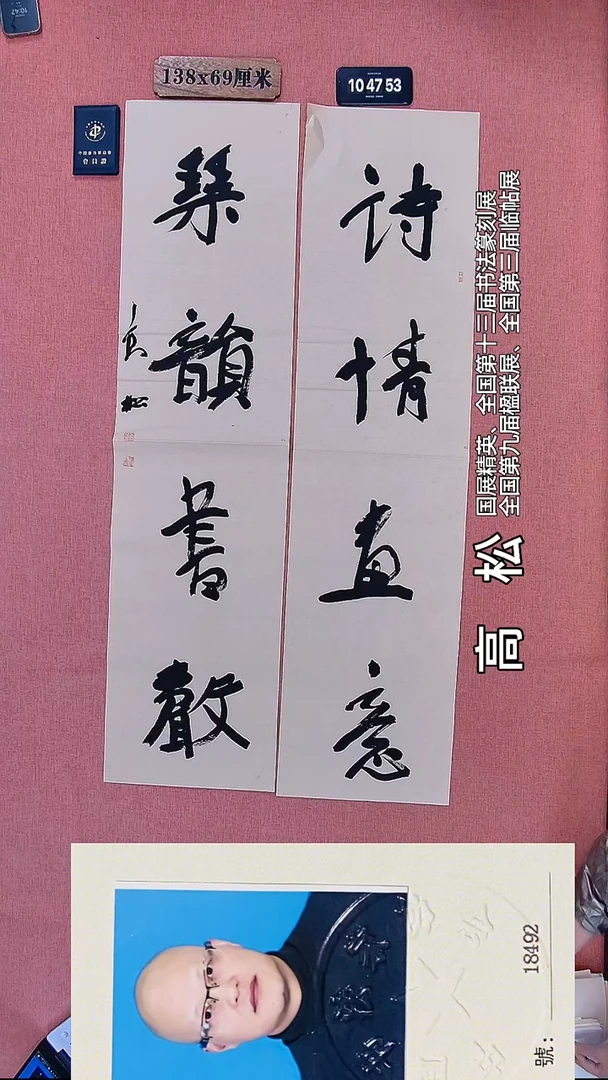 138x69厘米
10 47 53
會員證
詩情畫意
琴韻書聲
高松
国展精英、全国第十三届书法篆刻展
全国第九届楹联展、全国第三届临帖展
高 松
號：18492